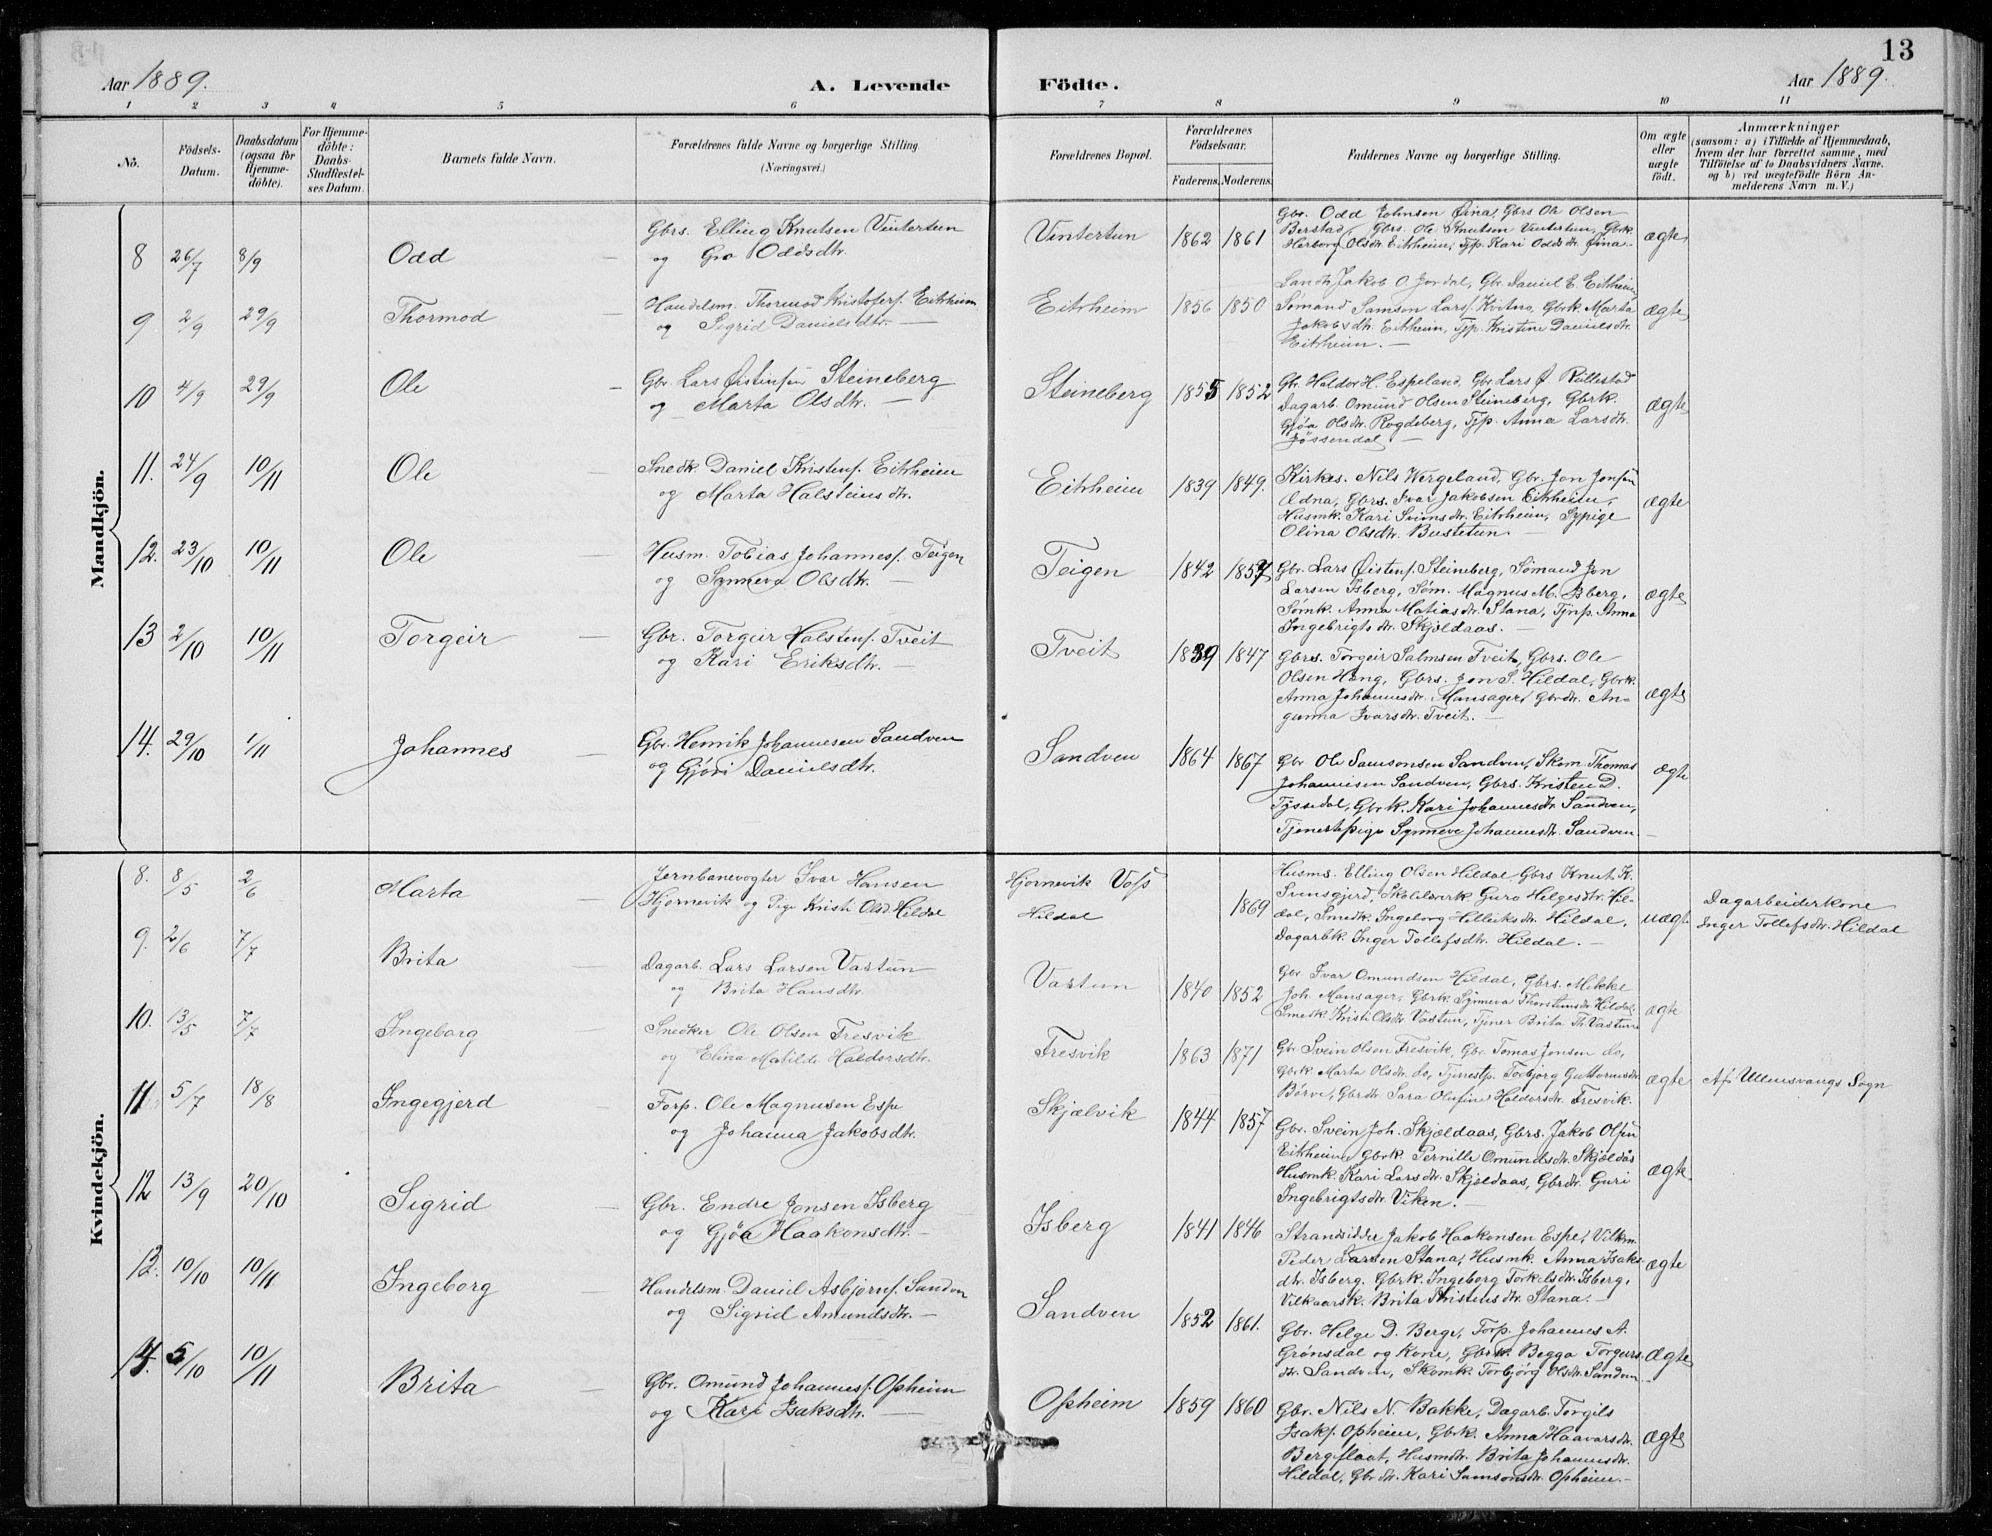 13
Aar 1889.
A. Levende Födte.
Aar 1889.
1 2 3 4 5 6 7 8 9 10 11
No.
Födsels-Datum.
Daabsdatum (ogsaa for Hjemme-döbte).
For Hjemme-döbte: Daabs-Stadfæstelses Datum.
Barnets fulde Navn.
Forældrenes fulde Navne og borgerlige Stilling (Næringsvei.)
Forældrenes Bopæl.
Forældrenes Födselsaar.
Faderens. Moderens.
Faddernes Navne og borgerlige Stilling.
Om ægte eller uægte födt.
Anmærkninger
(saasom: a) i Tilfælde af Hjemmedaab, hvem der har forrettet samme, med Tilföielse af to Daabsvidners Navne. og b) ved uægtefödte Börn Anmelderens Navn m. V.)
Mandkjön.
8 26/7 8/9 Odd
Gbrs. Elling Knutsen Vintertun
og Gro Oddsdtr.
Vintertun 1862 1861
Gbr. Odd Johnsen Øina, Gbrs Ole Olsen
Berstad, Gbrs. Ole Knutsen Vintertun, Gbrk.
Herborg Olsdtr. Eitrheim, Tjp. Kari Oddsdtr. Øina.
ægte
9 2/9 29/9 Thormod
Handelsm. Thormod Kristofers. Eitrheim
og Sigrid Danielsdtr.
Eitrheim 1856 1850
Landh. Jakob O. Jordal, Gbr. Daniel E. Eitrheim,
Sømand Samson Lars. Kvitno, Gbrk. Marta
Jakobsdtr. Eitrheim, Tjp. Kristine Danielsdtr.
Eitrheim.
ægte
10 4/9 29/9 Ole
Gbr. Lars Øistensen Steineberg
og Marta Olsdtr.
Steineberg 1855 1852
Gbr. Haldor H. Espeland, Gbr Lars Ø. Røllestad
Dagarb. Omund Olsen Steineberg, Gbrk.
Gjøa Olsdtr. Ragdeberg, Tjp. Anna Larsdtr.
Jøssendal
ægte
11. 24/9 10/11 Ole
Snedk. Daniel Kristens. Eitrheim
og Marta Halsteinsdtr.
Eitrheim 1839 1849.
Kirkes. Nils Wergeland, Gbr. Jon Jonsen
Ædna, Gbrs. Ivar Jakobsen Eitrheim,
Husmk. Kari Svensdtr. Eitrheim, Sypige
Olina Olsdtr. Bustetun.
ægte
12. 23/10 10/11 Ole
Husm. Tobias Johannes. Teigen
og Synneva Olsdtr.
Teigen 1842 1857
Gbr. Lars Øistens. Steineberg, Sømand Jon
Larsen Isberg, Søm. Magnus M. Isberg,
Sømk. Anna Matiasdtr. Stana, Tjnp. Anna
Ingebrigtsdtr. Skjeldaas.
ægte
13 2/10 10/11 Torgeir
Gbr. Torgeir Halstens. Tveit
og Kari Eriksdtr.
Tveit 1839 1847
Gbrs. Torgeir Salmsen Tveit, Gbrs. Ole
Olsen Haug, Gbrs. Jon S. Hildal, Gbrk.
Anna Johannesdtr. Mansager, Gbrdtr. An-
gunna Ivarsdtr. Tveit.
ægte
14. 29/10 1/11 Johannes
Gbr. Henrik Johannesen Sandven
og Gjøri Danielsdtr.
Sandven 1864 1867
Gbr Ole Samsonsen Sandven, Skom. Thomas
Johannesen Sandven, Gbrs. Kristen D.
Tyssedal, Gbrk. Kari Johannesdtr. Sandven,
Tjenestepige Synneve Johannesdtr. Sandven.
ægte
Kvindekjön.
8. 8/5 2/6 Marta
Jernbanevogter Ivar Hansen
Hjørnevik og Pige Kristi Olsd. Hildal
Hjørnevik Voss
Hildal
1869
Husms. Elling Olsen Hildal, Gbrs Knut K.
Svensgjerd, Skolelærerk Guro Helgesdtr. Hil-
dal, Smedk. Ingeborg Helleiksdtr. Hildal,
Dagarbk. Inger Tollefsdtr. Hildal.
uægte
Dagarbeiderkone
Inger Tollefsdtr. Hildal
9. 2/6 7/7 Brita
Dagarb. Lars Larsen Vastun
og Brita Hansdtr.
Vastun 1840 1852
Gbr Ivar Omundsen Hildal, Gbrs. Mikkel
Joh. Mansager, Gbrk. Synneva Thorsteinsdtr Hildal,
Smedk Kristi Olsdtr Vastun, Tjener Brita Th. Vastun
ægte
10. 13/5 7/7 Ingeborg
Snedker Ole Olsen Fresvik
og Elina Matilde Haldorsdtr.
Fresvik 1863 1871
Gbr Svein Olsen Fresvik, Gbr. Tomas Jonsen do,
Gbrk Marta Olsdtr. do, Tjenestp. Torbjørg Guttormsdtr.
Børve, Gbrdtr Sara Olufine Haldorsdtr. Fresvik.
ægte
Af Ullensvangs Sogn
11 5/7 18/8 Ingegjerd
Forp. Ole Magnusen Espe
og Johanna Jakobsdtr.
Skjælvik 1844 1857
Gbr. Svein Joh. Skjældaas, Gbrs. Jakob Olsen
Eitrheim, Gbrk. Pernille Omundsdtr. Skjeldås
Husmk. Kari Larsdtr. Skjeldaas, Gbrdtr. Guri
Ingebrigtsdtr. Viken.
ægte
12 13/9 20/10 Sigrid
Gbr. Endre Jonsen Isberg
og Gjøa Haakonsdtr.
Isberg 1841 1846
Strandsidder Jakob Haakonsen Espe, Vilkm.
Peder Larsen Stana, Husmk. Anna Isaks-
dtr. Isberg. Gbrk. Ingeborg Torkelsdtr. Isberg,
Vilkaarsk. Brita Kristensdtr. Stana.
ægte
13. 10/10 10/11 Ingeborg
Handelsm. Daniel Asbjørns. Sandven
og Sigrid Amundsdtr.
Sandven 1852 1861.
Gbr. Helge D. Berge, Forp. Johannes A.
Grønsdal og Kone, Gbrk. Begga Torgeirs-
dtr. Sandven, Skomk. Torbjørg Olsdtr. Sandven
ægte
14. 5/10 10/11 Brita
Gbr. Omund Johannes. Opheim
og Kari Isaksdtr.
Opheim 1859 1860
Gbr. Nils N. Bakke, Dagarb. Torgils
Isaks. Opheim, Gbrk. Anna Haavarsdtr.
Bergeflaat, Husmdtr. Brita Johannesdtr.
Hildal, Gbrdtr. Kari Samsonsdtr. Opheim.
ægte